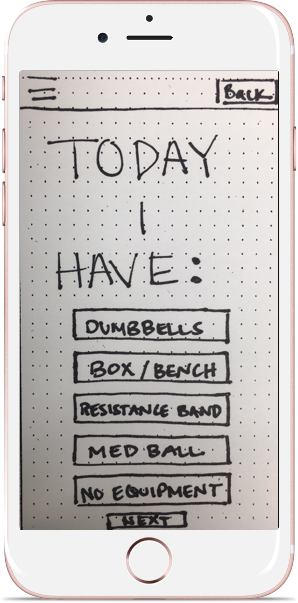 BACK
TODAY
I
HAVE:
DUMBBELLS
BOX/BENCH
RESISTANCE BAND
MED BALL
NO EQUIPMENT
NEXT